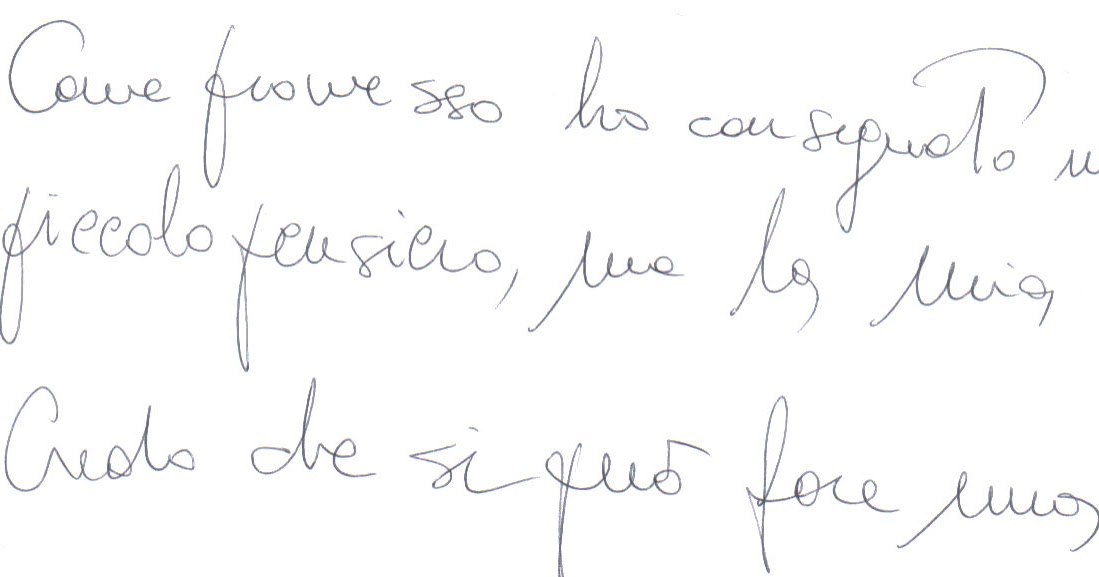 Come promesso ho consegnato u
piccolo pensiero, ma la mia
Credo che si può fare una